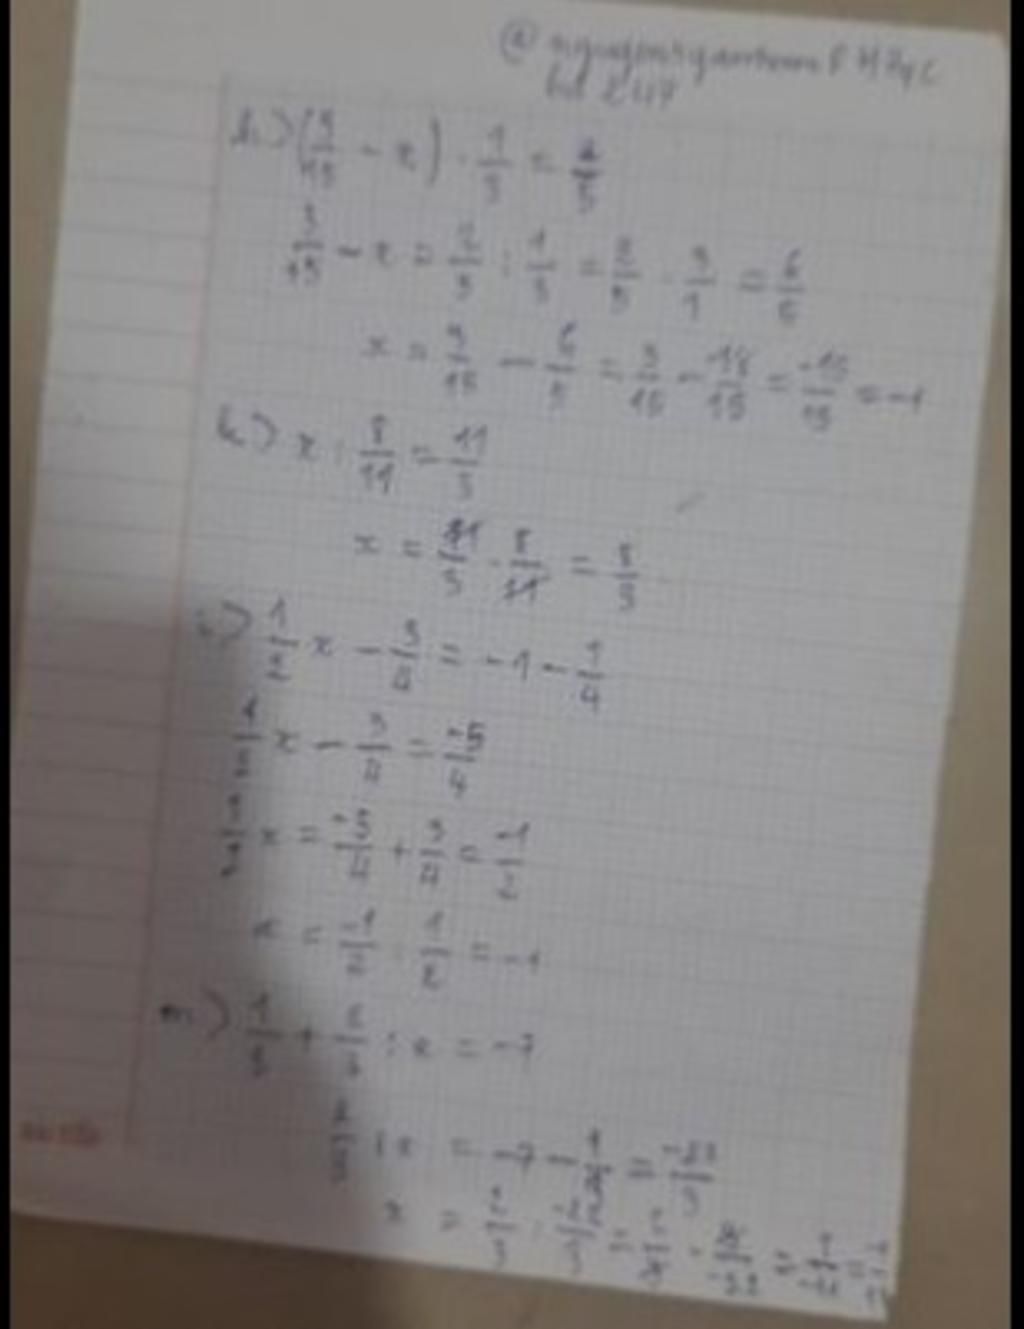 h.) (3/15 - x) · 1/3 = 2/5
3/15 - x = 2/5 : 1/3 = 2/5 · 3/1 = 6/5
x = 3/15 - 6/5 = 3/15 - 18/15 = -15/15 = -1
k.) x : 8/11 = 11/3
x = 11/3 · 8/11 = 8/3
1/2 x - 3/4 = -1 - 1/4
1/2 x - 3/4 = -5/4
1/2 x = -5/4 + 3/4 = -1/2
x = -1/2 : 1/2 = -1
m.) 1/3 + 2/3 : x = -7
2/3 : x = -7 - 1/3 = -22/3
x = 2/3 : -22/3 = 2/3 · 3/-22 = 1/-11 = -1/11